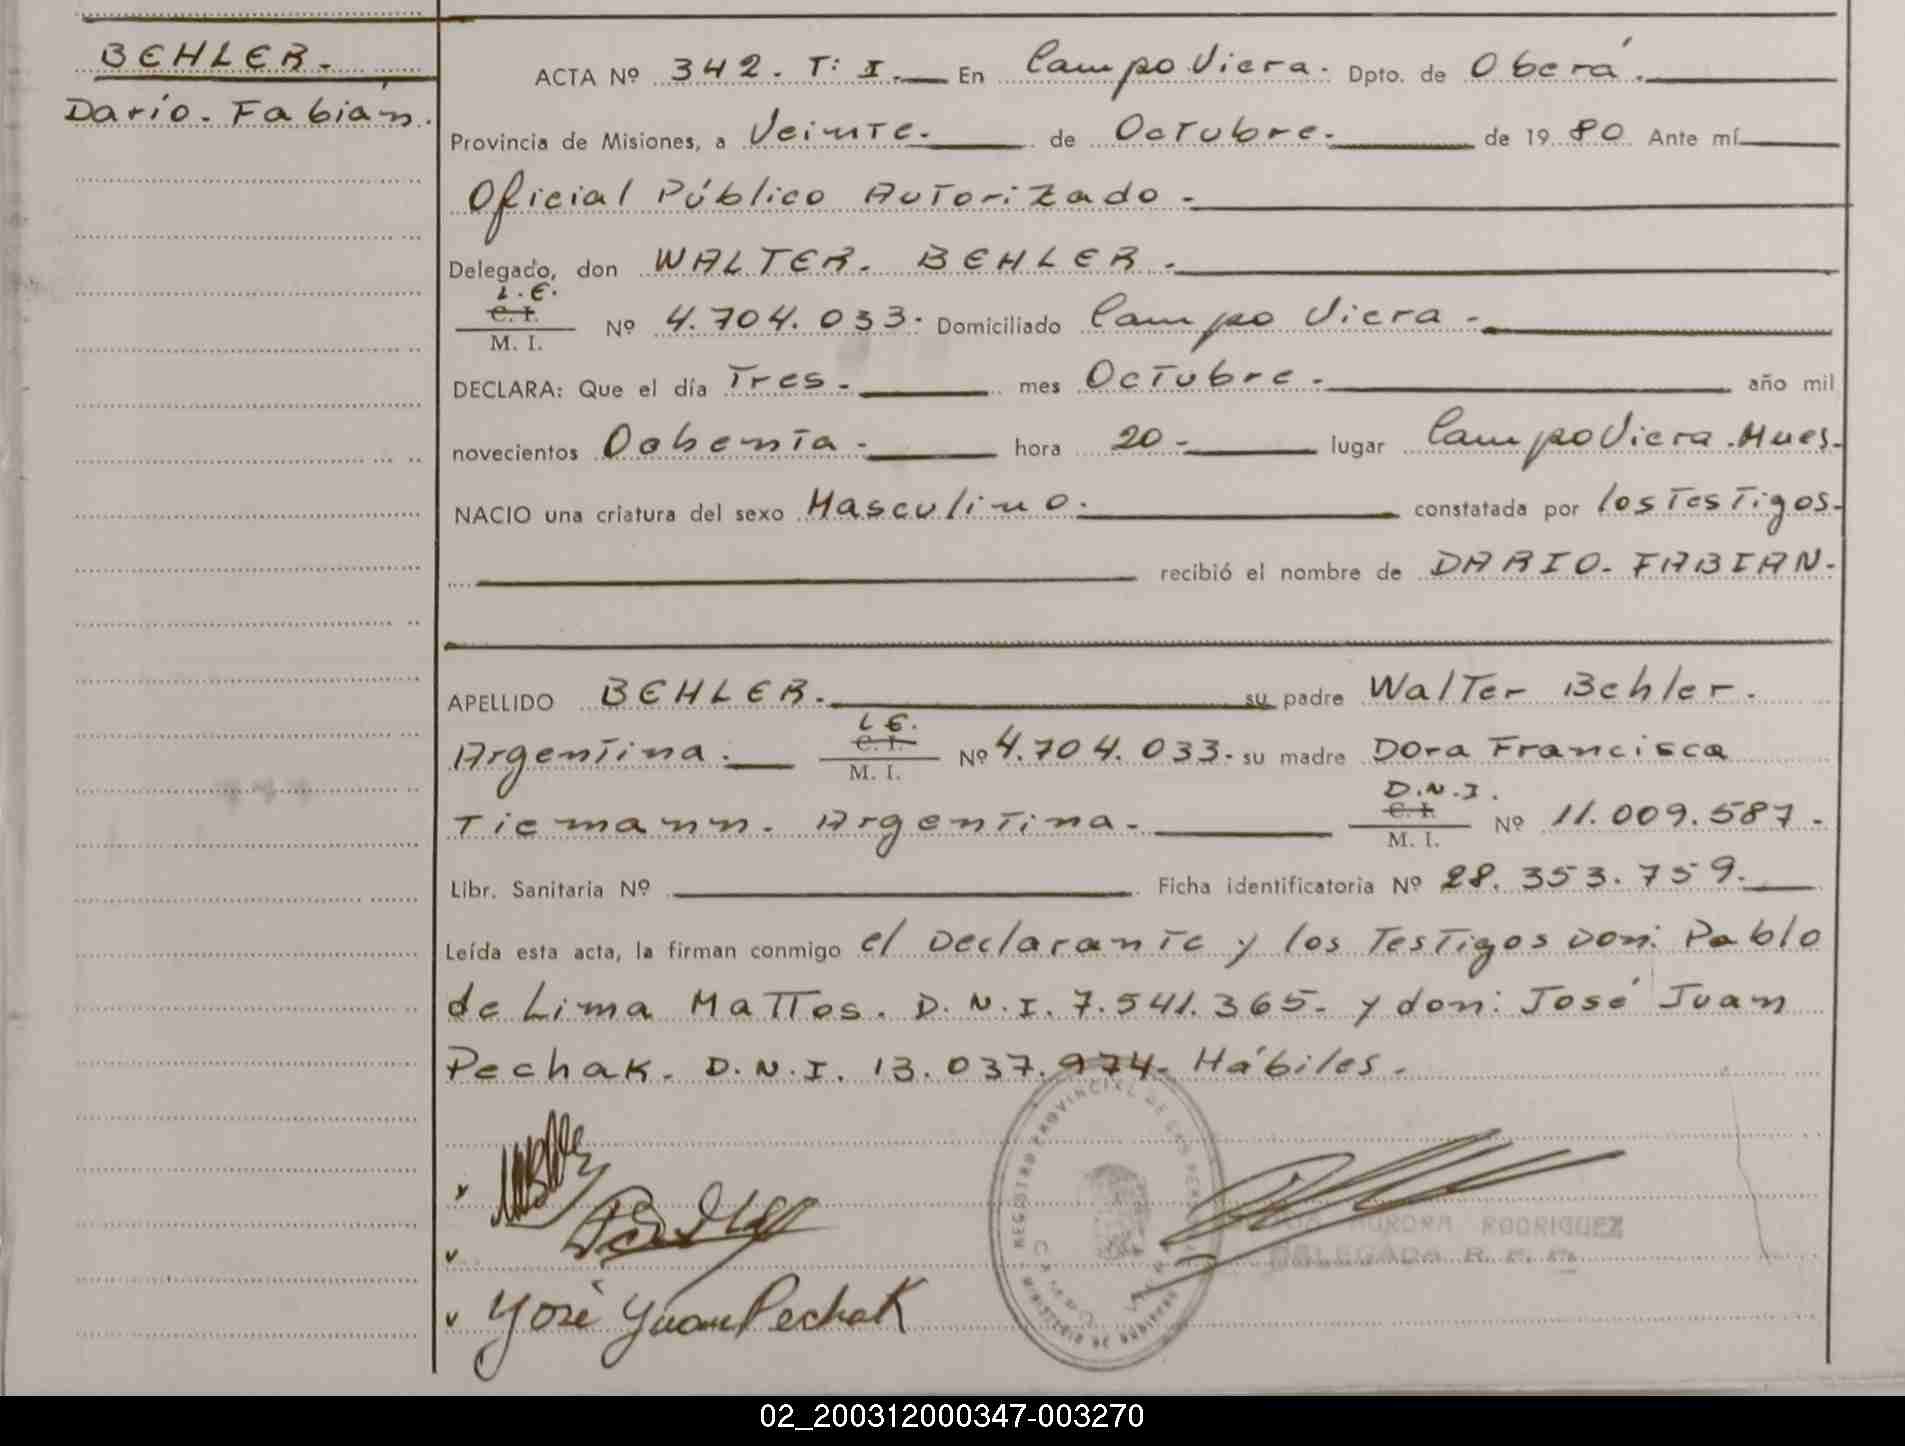 BEHLER.
Darío. Fabián.
ACTA Nº 342. T: I. En Campo Viera. Dpto. de Oberá.
Provincia de Misiones, a Veinte. de Octubre. de 1980 Ante mí
Oficial Público Autorizado.
Delegado, don WALTER. BEHLER.
L.E.
C. I.
M. I. Nº 4.704.033. Domiciliado Campo Viera.
DECLARA: Que el día Tres. mes Octubre. año mil
novecientos Ochenta. hora 20 lugar Campo Viera. Mnes.
NACIO una criatura del sexo Masculino. constatada por los Testigos.
recibió el nombre de DARIO. FABIAN.
APELLIDO BEHLER. su padre Walter Behler.
Argentina. L E. C. I. M. I. Nº 4.704.033. su madre Dora Francisca
Tiemann. Argentina. D.N.I. C. I. M. I. Nº 11.009.587.
Libr. Sanitaria Nº Ficha identificatoria Nº 28.353.759.
Leída esta acta, la firman conmigo el Declarante y los Testigos Don: Pablo
de Lima Mattos. D.N.I. 7.541.365. y don: José Juan
Pechak. D.N.I. 13.037.974. Hábiles.
REGISTRO PROVINCIAL DE LAS
MINISTERIO DE GOBIERNO
AURORA RODRIGUEZ
DELEGADA R. P. P.
José Juan Pechak
02_200312000347-003270